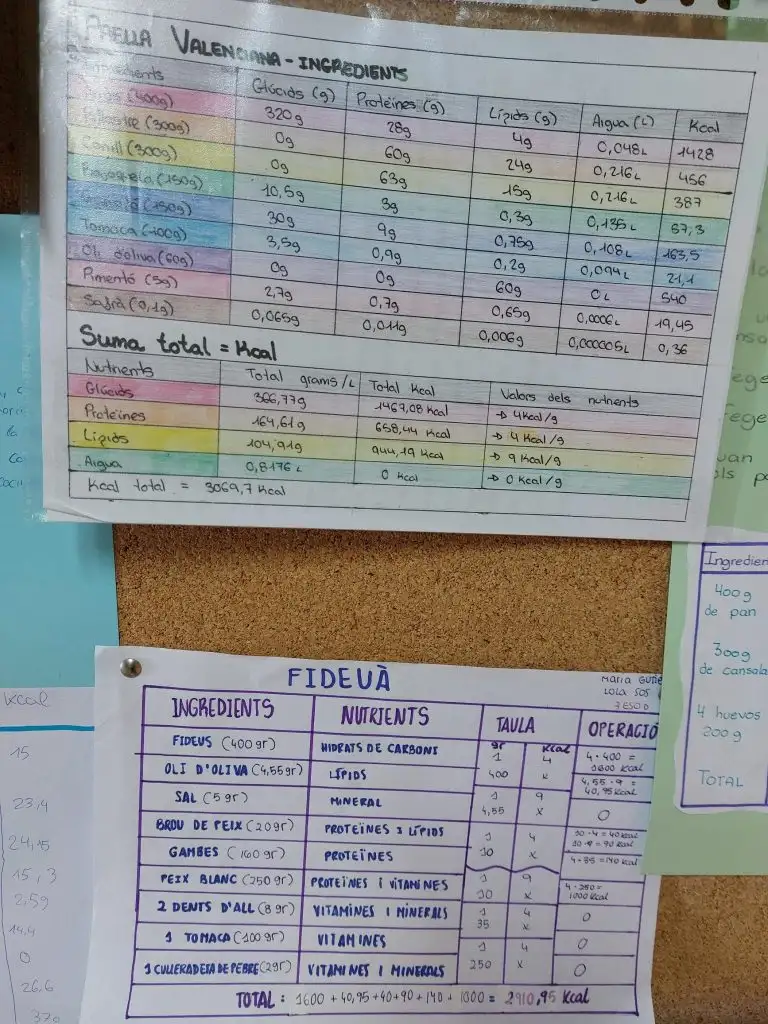 PAELLA VALENCIANA - INGREDIENTS
Ingredients Glúcids (g) Proteïnes (g) Lípids (g) Aigua (L) Kcal
Arròs (400g) 320g 28g 4g 0,048L 1428
Pollastre (300g) 0g 60g 24g 0,216L 456
Conill (300g) 0g 63g 15g 0,216L 387
(150g) 10,5g 3g 0,3g 0,135L 57,3
(150g) 30g 9g 0,75g 0,108L 163,5
Tomaca (100g) 3,5g 0,9g 0,2g 0,094L 21,1
Oli d'oliva (60g) 0g 0g 60g 0L 540
Pimentó (5g) 2,7g 0,7g 0,65g 0,0006L 19,45
Safrà (0,1g) 0,065g 0,011g 0,006g 0,000005L 0,36
Suma total = Kcal
Nutrients Total grams/L Total Kcal Valors dels nutrients
Glúcids 366,77g 1467,08 Kcal → 4Kcal/g
Proteïnes 164,61g 658,44 Kcal → 4 Kcal/g
Lípids 104,91g 944,19 Kcal → 9 Kcal/g
Aigua 0,8176 L 0 Kcal → 0 Kcal/g
Kcal total = 3069,7 Kcal
FIDEUÀ
MARIA
LOLA SOS
INGREDIENTS NUTRIENTS TAULA OPERACIÓ
gr kcal
FIDEUS (400 gr) HIDRATS DE CARBONI 1 4 4·400 =
400 x 1600 kcal
OLI D'OLIVA (4,55gr) LÍPIDS 1 9 4,55·9 =
4,55 x 40,95 kcal
SAL (5 gr) MINERAL 0
BROU DE PEIX (20gr) PROTEÏNES I LÍPIDS 1 4 10·4 = 40 kcal
10 x 10·9 = 90 kcal
GAMBES (160 gr) PROTEÏNES 1 9 4·35 = 140 kcal
10 x
PEIX BLANC (250 gr) PROTEÏNES I VITAMINES 1 4 4·250 =
35 x 1000 kcal
2 DENTS D'ALL (8 gr) VITAMINES I MINERALS 1 4 0
250 x
1 TOMACA (100 gr) VITAMINES 0
1 CULLERADETA DE PEBRE (2gr) VITAMINES I MINERALS 0
TOTAL: 1600 + 40,95 + 40 + 90 + 140 + 1000 = 2910,95 Kcal
Kcal
15
23,4
24,15
15,3
2,59
14,4
0
26,6
370
Ingredien
400g
de pan
300g
de cansala
4 huevos
200g
TOTAL